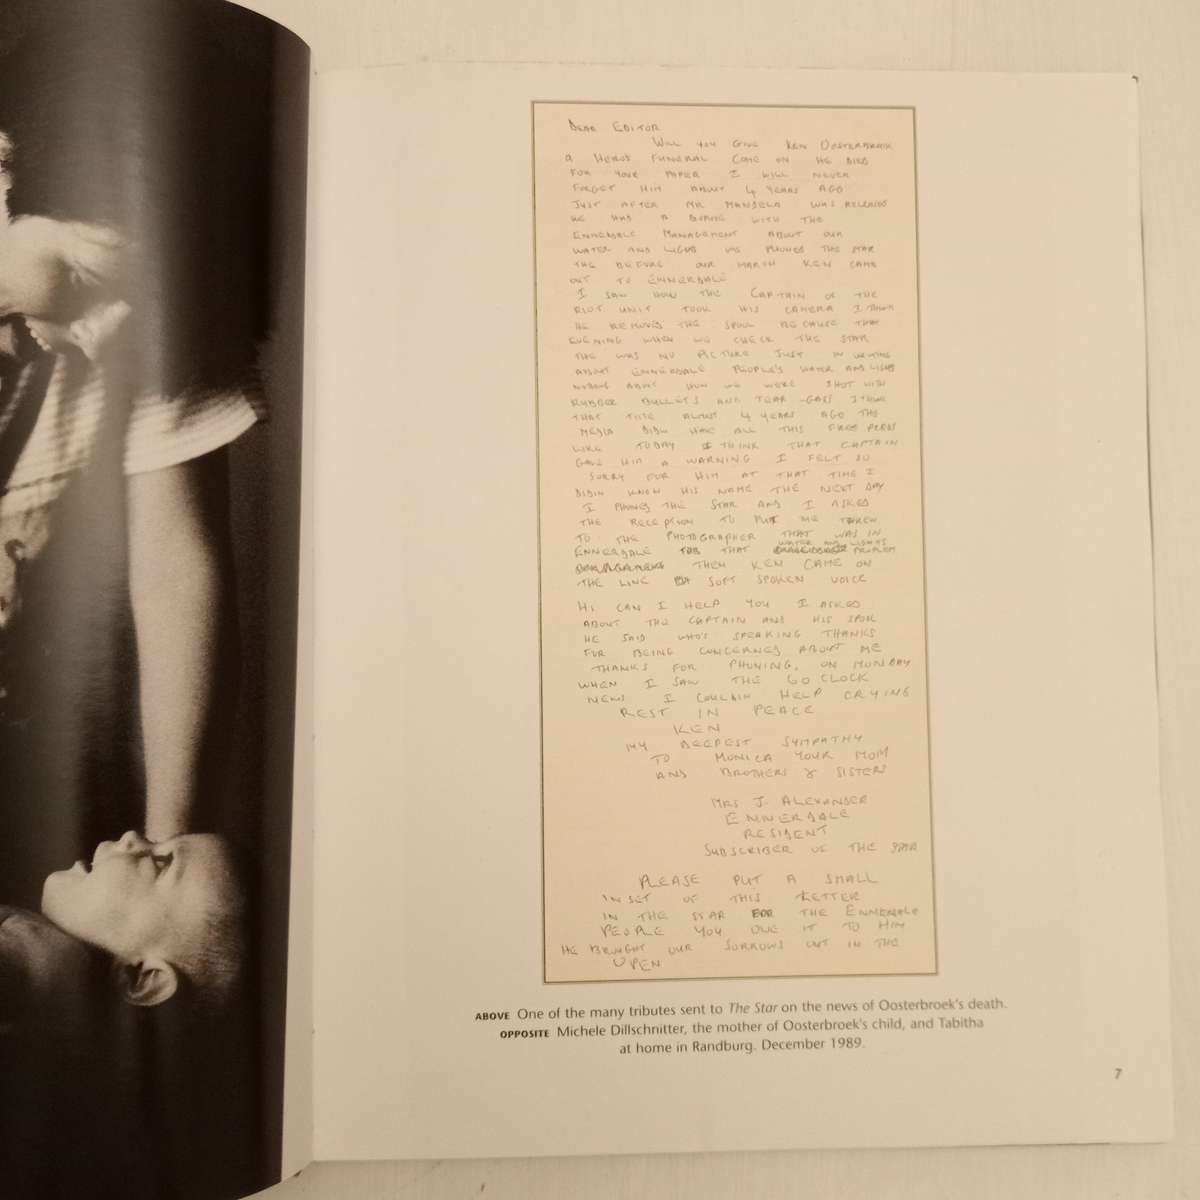 DEAR EDITOR
WILL YOU GIVE KEN OOSTERBROEK
A HEROS FUNERAL COME ON HE DIED
FOR YOUR PAPER I WILL NEVER
FORGET HIM ABOUT 4 YEARS AGO
JUST AFTER MR MANDELA WAS RELEASED
WE HAD A WITH THE
ENNERDALE MANAGEMENT ABOUT OUR
WATER AND LIGHTS WE PHONED THE STAR
THE BEFORE OUR MARCH KEN CAME
OUT TO ENNERDALE
I SAW HOW THE CAPTAIN OF THE
RIOT UNIT TOOK HIS CAMERA I THINK
HE REMOVED THE SPOOL BECAUSE THAT
EVENING WHEN WE CHECK THE STAR
THE WAS NO PICTURE JUST IN WRITING
ABOUT ENNERDALE PEOPLE'S WATER AND LIGHTS
NOTHING ABOUT HOW WE WERE SHOT WITH
RUBBER BULLETS AND TEAR-GAS I THINK
THAT TIME ALMOST 4 YEARS AGO THE
MEDIA DIDN HAVE ALL THIS FREE PRESS
LIKE TODAY I THINK THAT CAPTAIN
GAVE HIM A WARNING I FELT SO
SORRY FOR HIM AT THAT TIME I
DIDIN KNOW HIS NAME THE NEXT DAY
I PHONED THE STAR AND I ASKED
THE RECEPTION TO PUT ME THREW
TO THE PHOTOGRAPHER THAT WAS IN
WATER AND LIGHTS
ENNERDALE THAT PROBLEM
THEN KEN CAME ON
THE LINE SOFT SPOKEN VOICE
HI CAN I HELP YOU I ASKED
ABOUT THE CAPTAIN AND HIS SPOOL
HE SAID WHO'S SPEAKING THANKS
FOR BEING CONCERNED ABOUT ME
THANKS FOR PHONING, ON MONDAY
WHEN I SAW THE 6 O CLOCK
NEWS I COULDIN HELP CRYING
REST IN PEACE
KEN
MY DEEPEST SYMPATHY
TO MONICA YOUR MOM
AND BROTHERS & SISTERS
MRS J. ALEXANDER
ENNERDALE
RESIDENT
SUBSCRIBER OF THE STAR
PLEASE PUT A SMALL
INSET OF THIS LETTER
IN THE STAR FOR THE ENNERDALE
PEOPLE YOU OWE IT TO HIM
HE BROUGHT OUR SORROWS OUT IN THE
OPEN
ABOVE One of the many tributes sent to The Star on the news of Oosterbroek's death.
OPPOSITE Michele Dillschnitter, the mother of Oosterbroek's child, and Tabitha
at home in Randburg. December 1989.
7